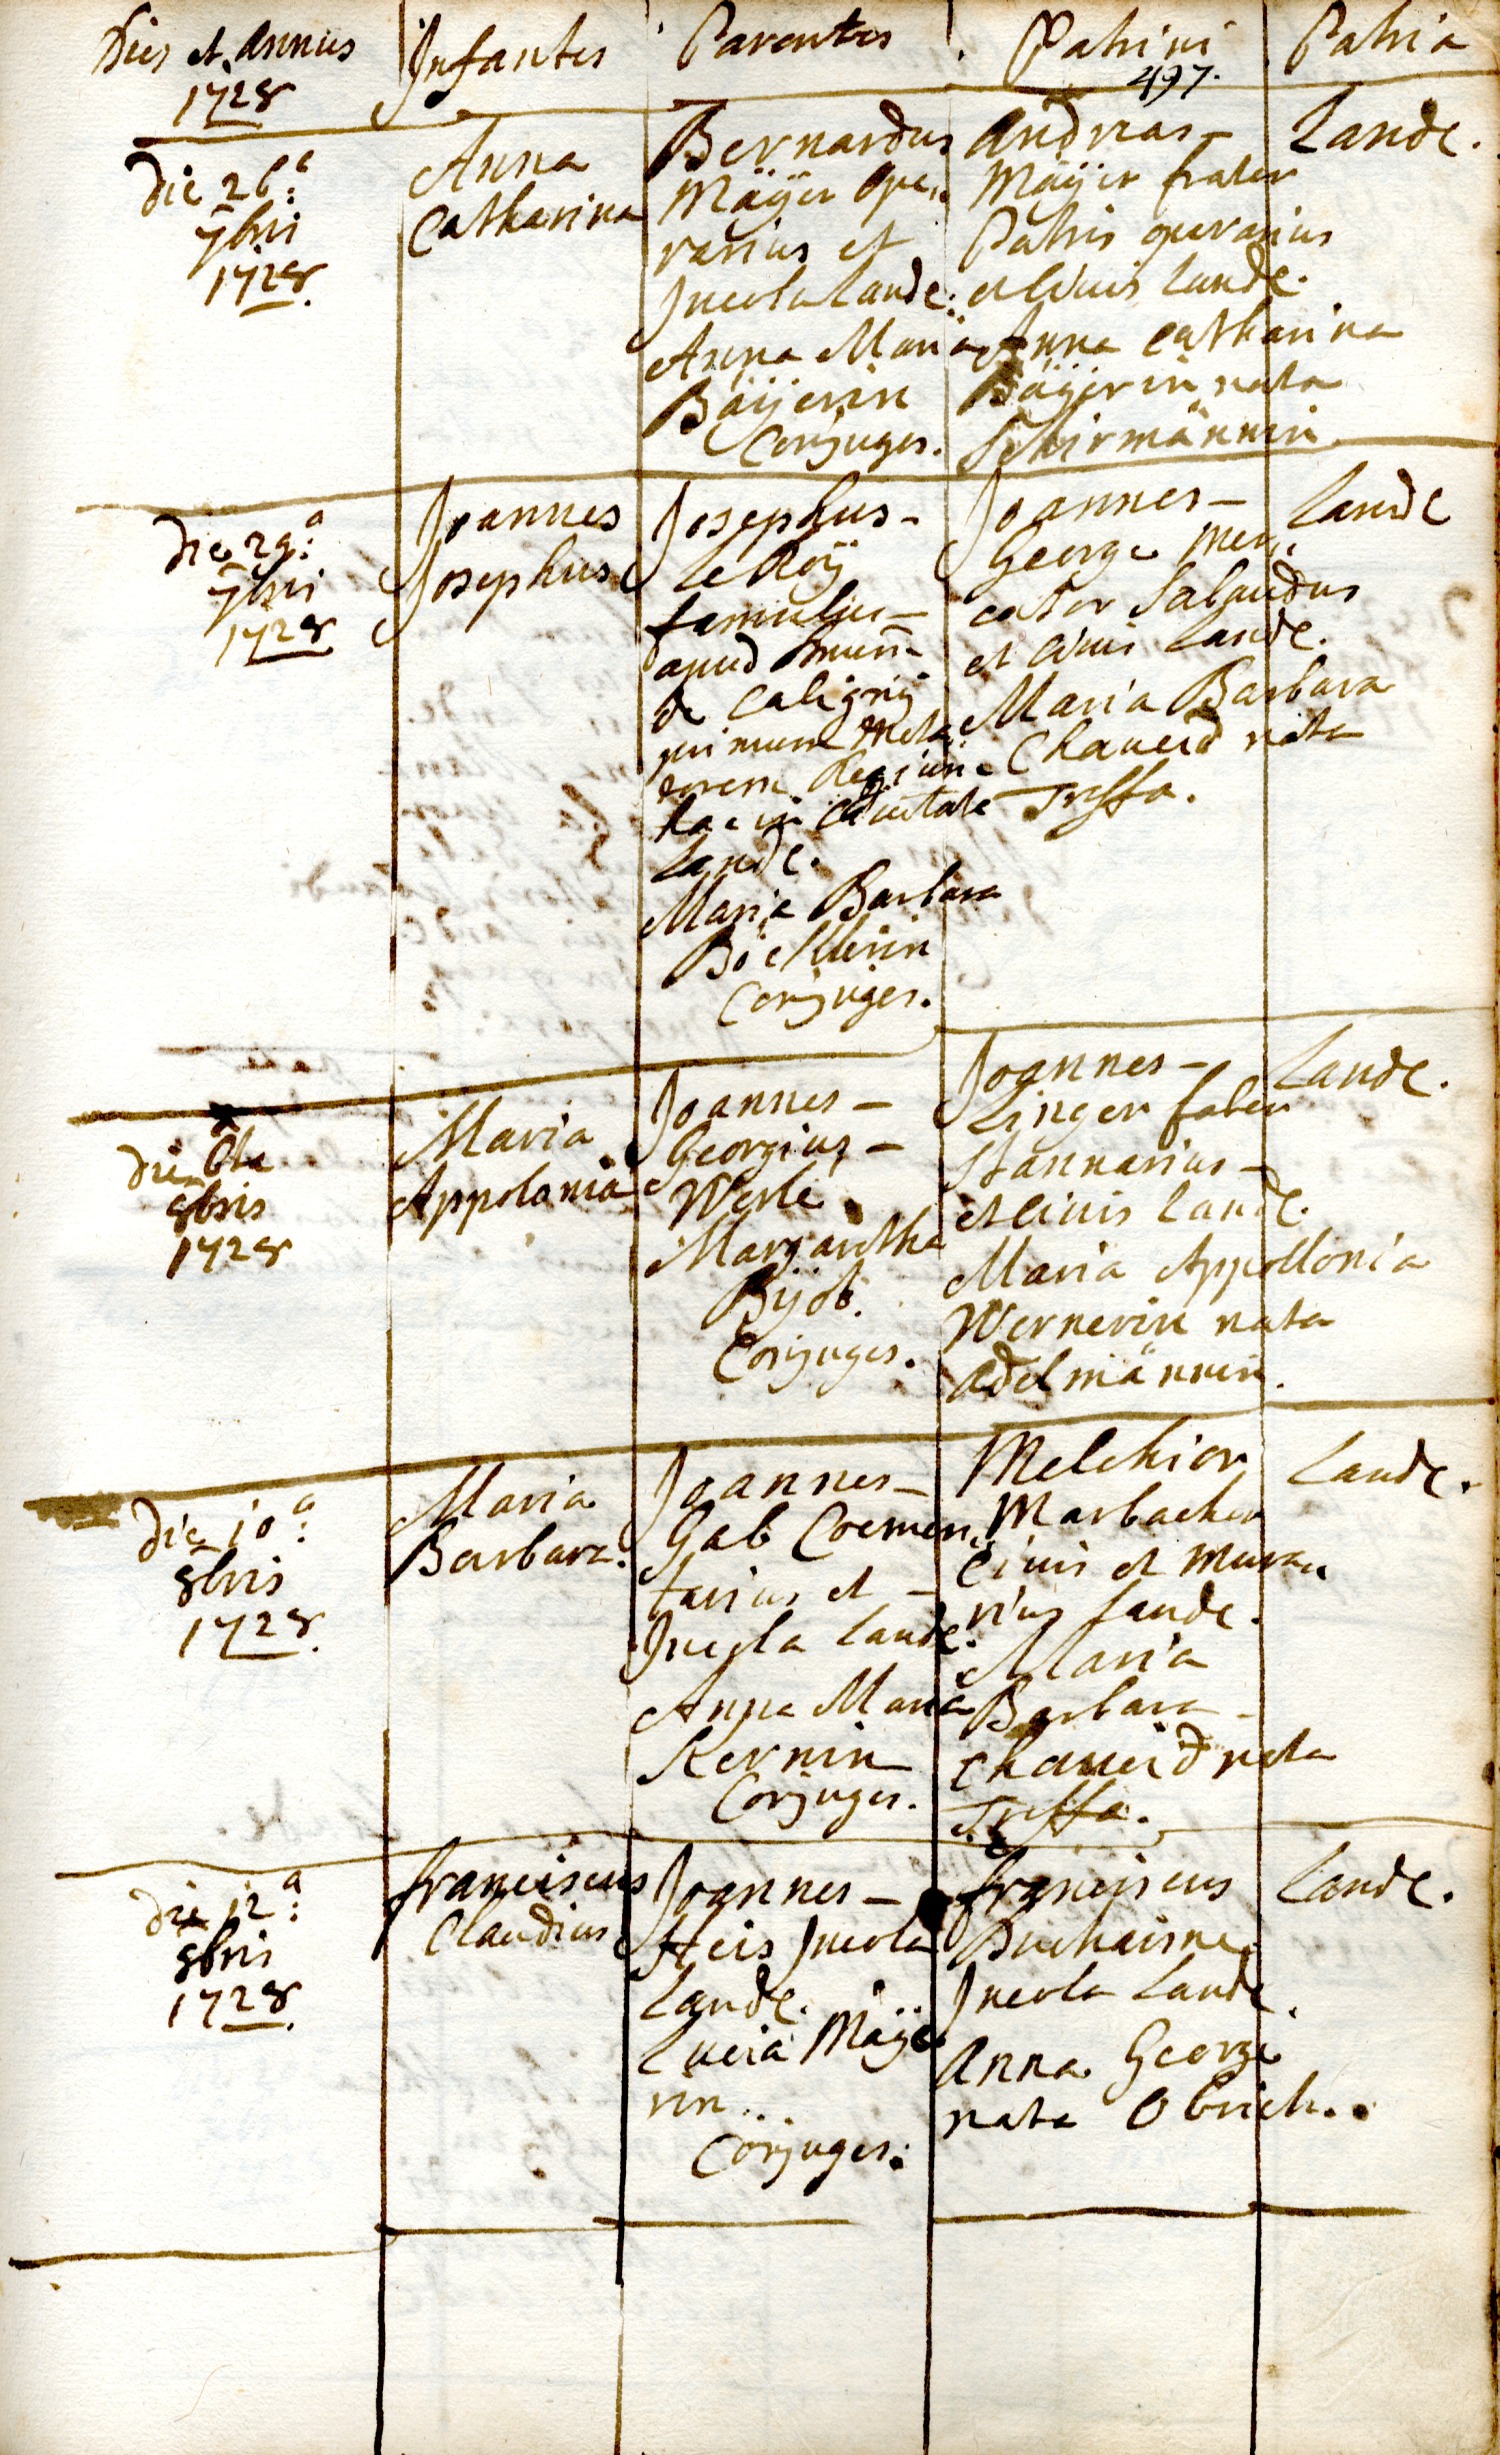 Dies et Annus
1728
Infantes
Parentes
Patrini
497.
Patria
Die 26.a
7bris
1728.
Anna
Catharina
Bernardus
Mäÿer ope„
rarius et
Incola Landc:
Anna Maria
Bäÿerin
Conjuges.
Andreas–
Mäÿer frater
Patris operarius
et Civis Landc.
Anna Catharina
Bäÿerin nata
Schirmännin.
Landc.
Die 29.a
7bris
1728
Joannes
Josephus
Josephus–
Le Roÿ
famulus–
apud
de Caligniÿ
primum
hac in Civitate
Landc.
Maria Barbara
Böcklerin
Conjuges.
Joannes–
George mer„
cator Sabaudus
et Civis Landc.
Maria Barbara
Chaueid nata
Treffa.
Landc
Die 6ta
8bris
1728
Maria
Appolonia
Joannes–
Georgius–
Werlé
Margaritha
Bijot.
Conjuges.
Joannes–
Linger faber
Stannarius–
et Civis Landc.
Maria Appollonia
Wernerin nata
Adelmännin.
Landc.
Die 10.a
8bris
1728.
Maria
Barbara.
Joannes–
Gab Coemen„
tarius et –
Incola Landc.
Anna Maria
Kernin
Conjuges.
Melchior
Marbacher
Civis et mura„
rius Landc.
Maria
Barbara–
Chaueid nata
Treffa.
Landc.
Die 12.a
8bris
1728.
Franciscus
Claudius
Joannes–
Heis Incola
Landc.
Lucia Mäÿe
rin..
Conjuges.
Franciscus
Duchaisne
Incola Landc.
Anna George
nata Obrich..
Landc.